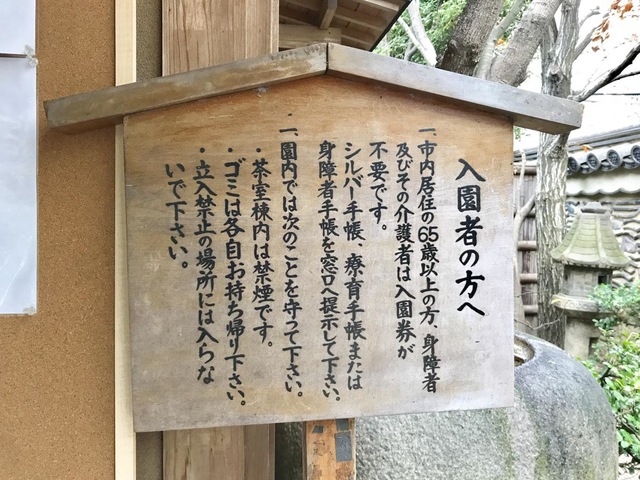 入園者の方へ
一、市内居住の65歳以上の方、身障者
及びその介護者は入園券が
不要です。
シルバー手帳、療育手帳または
身障者手帳を窓口へ提示して下さい。
一、園内では次のことを守って下さい。
・茶室棟内は禁煙です。
・ゴミは各自お持ち帰り下さい。
・立入禁止の場所には入らな
いで下さい。